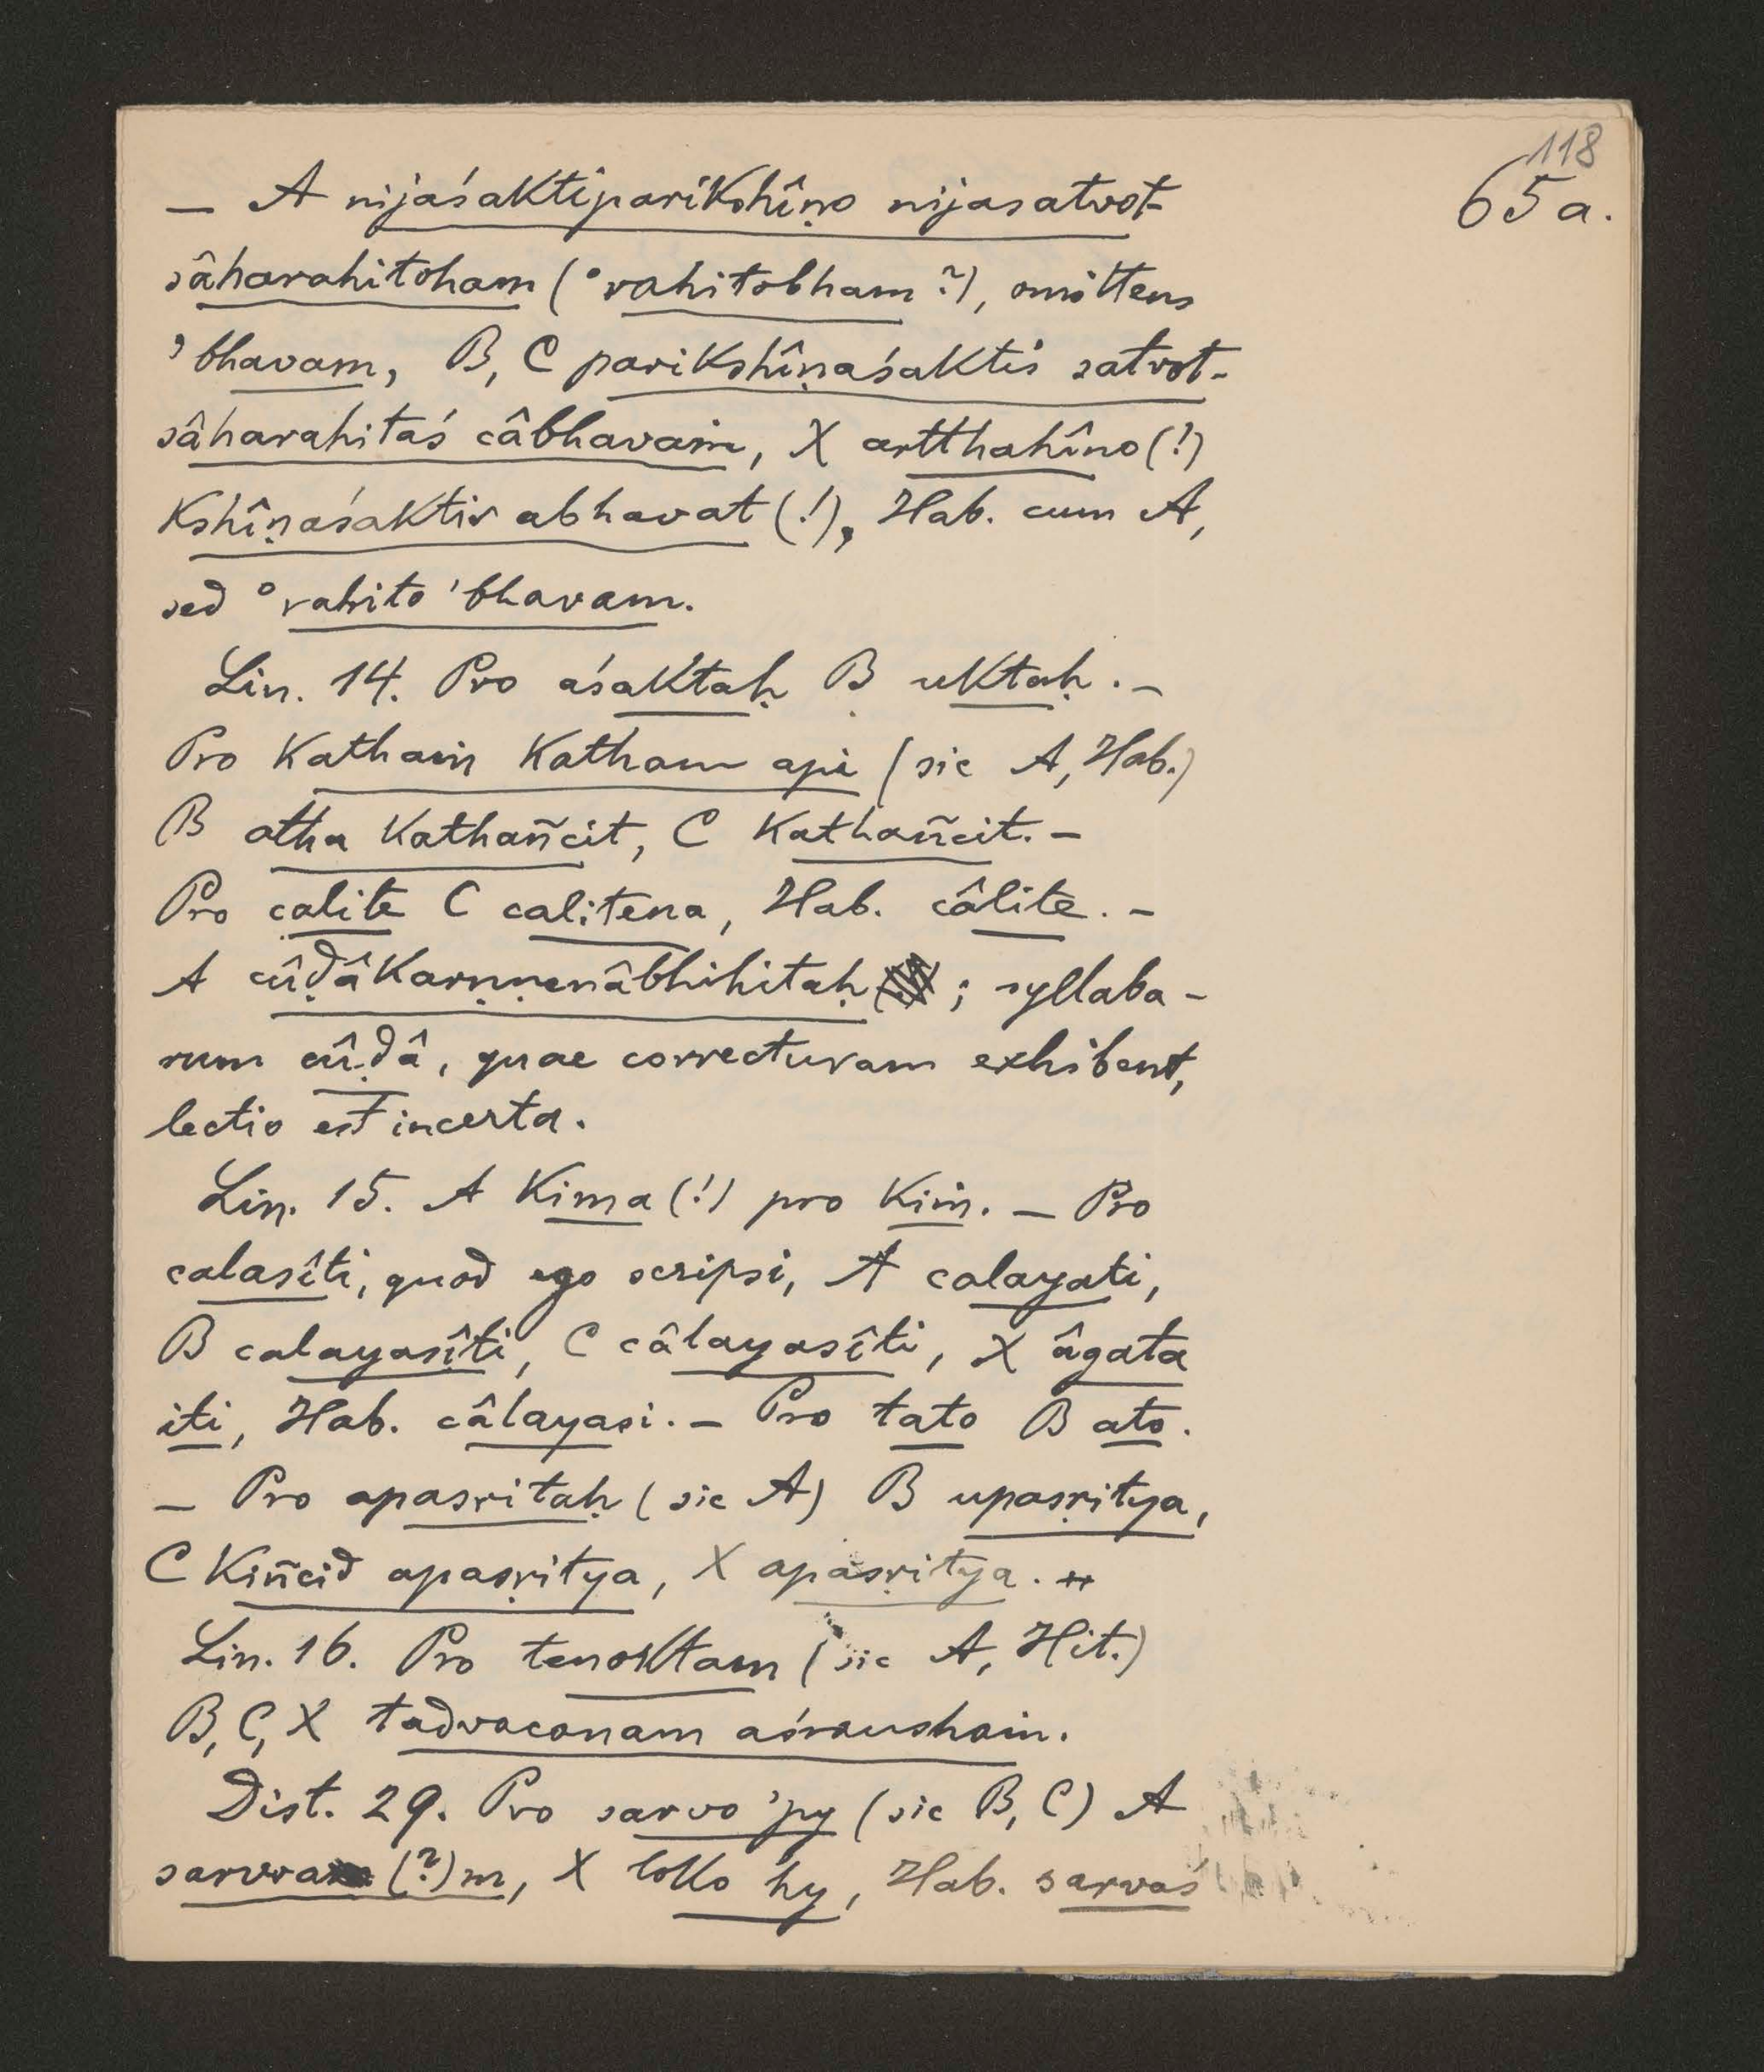 118
65a.
— A nijaśaktiparikshîṇo nijasatvot-
sâharahitoham (°rahitobham?), omittens
'bhavam, B, C parikshîṇaśaktis satvot-
sâharahitaś câbhavaṁ, X artthahîno (!)
kshîṇaśaktir abhavat (!), Hab. cum A,
sed °rahito 'bhavam.
Lin. 14. Pro aśaktaḥ B uktaḥ. —
Pro kathaṁ katham api (sic A, Hab.)
B atha kathañcit, C kathañcit. —
Pro calite C calitena, Hab. câlite. —
A cûḍâkarṇṇenâbhihitaḥ ; syllaba-
rum cûḍâ, quae correcturam exhibent,
lectio est incerta.
Lin. 15. A kima (!) pro kiṁ. — Pro
calasîti, quod ego scripsi, A calayati,
B calayasîti, C câlayasîti, X âgata
iti, Hab. câlayasi. — Pro tato B ato.
— Pro apasritaḥ (sic A) B upasṛitya,
C kiñcid apasṛitya, X apasṛitya.
Lin. 16. Pro tenoktam (sic A, Hit.)
B, C, X tadvacanam aśraushaṁ.
Dist. 29. Pro sarvo 'py (sic B, C) A
sarvva (?)m, X loko hy, Hab. sarvaś